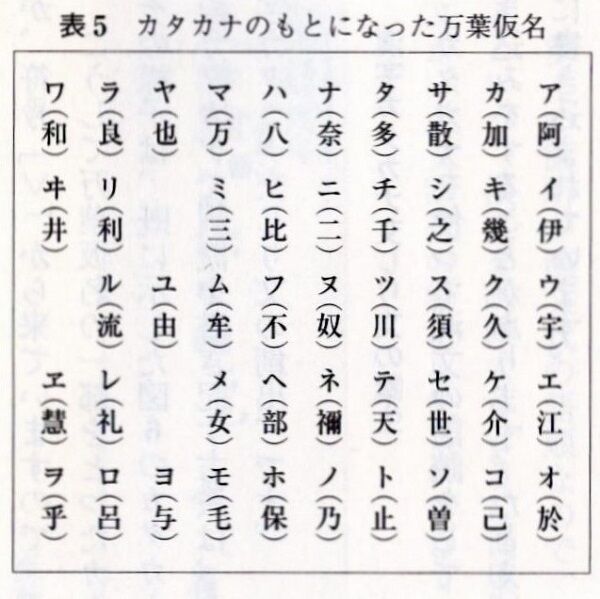 表5 カタカナのもとになった万葉仮名
ア(阿) イ(伊) ウ(宇) エ(江) オ(於)
カ(加) キ(幾) ク(久) ケ(介) コ(己)
サ(散) シ(之) ス(須) セ(世) ソ(曽)
タ(多) チ(千) ツ(川) テ(天) ト(止)
ナ(奈) ニ(二) ヌ(奴) ネ(禰) ノ(乃)
ハ(八) ヒ(比) フ(不) ヘ(部) ホ(保)
マ(万) ミ(三) ム(牟) メ(女) モ(毛)
ヤ(也) ユ(由) ヨ(与)
ラ(良) リ(利) ル(流) レ(礼) ロ(呂)
ワ(和) ヰ(井) ヱ(慧) ヲ(乎)